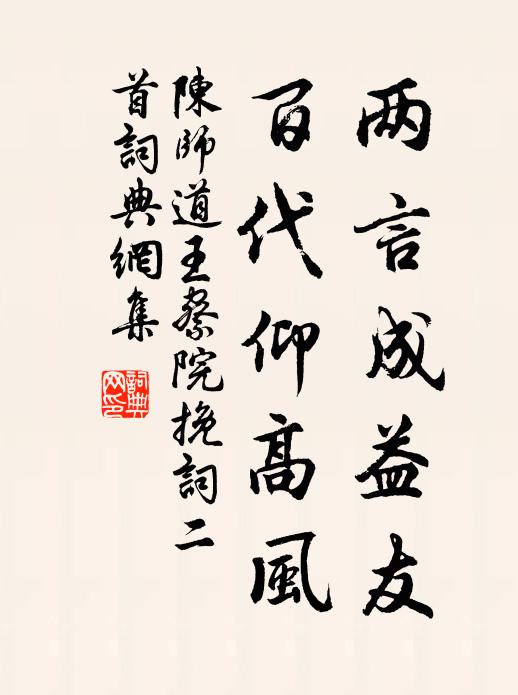 两言成益友
百代仰高風
陳師道王察院挽詞二
首詞典網集
詞典
网印